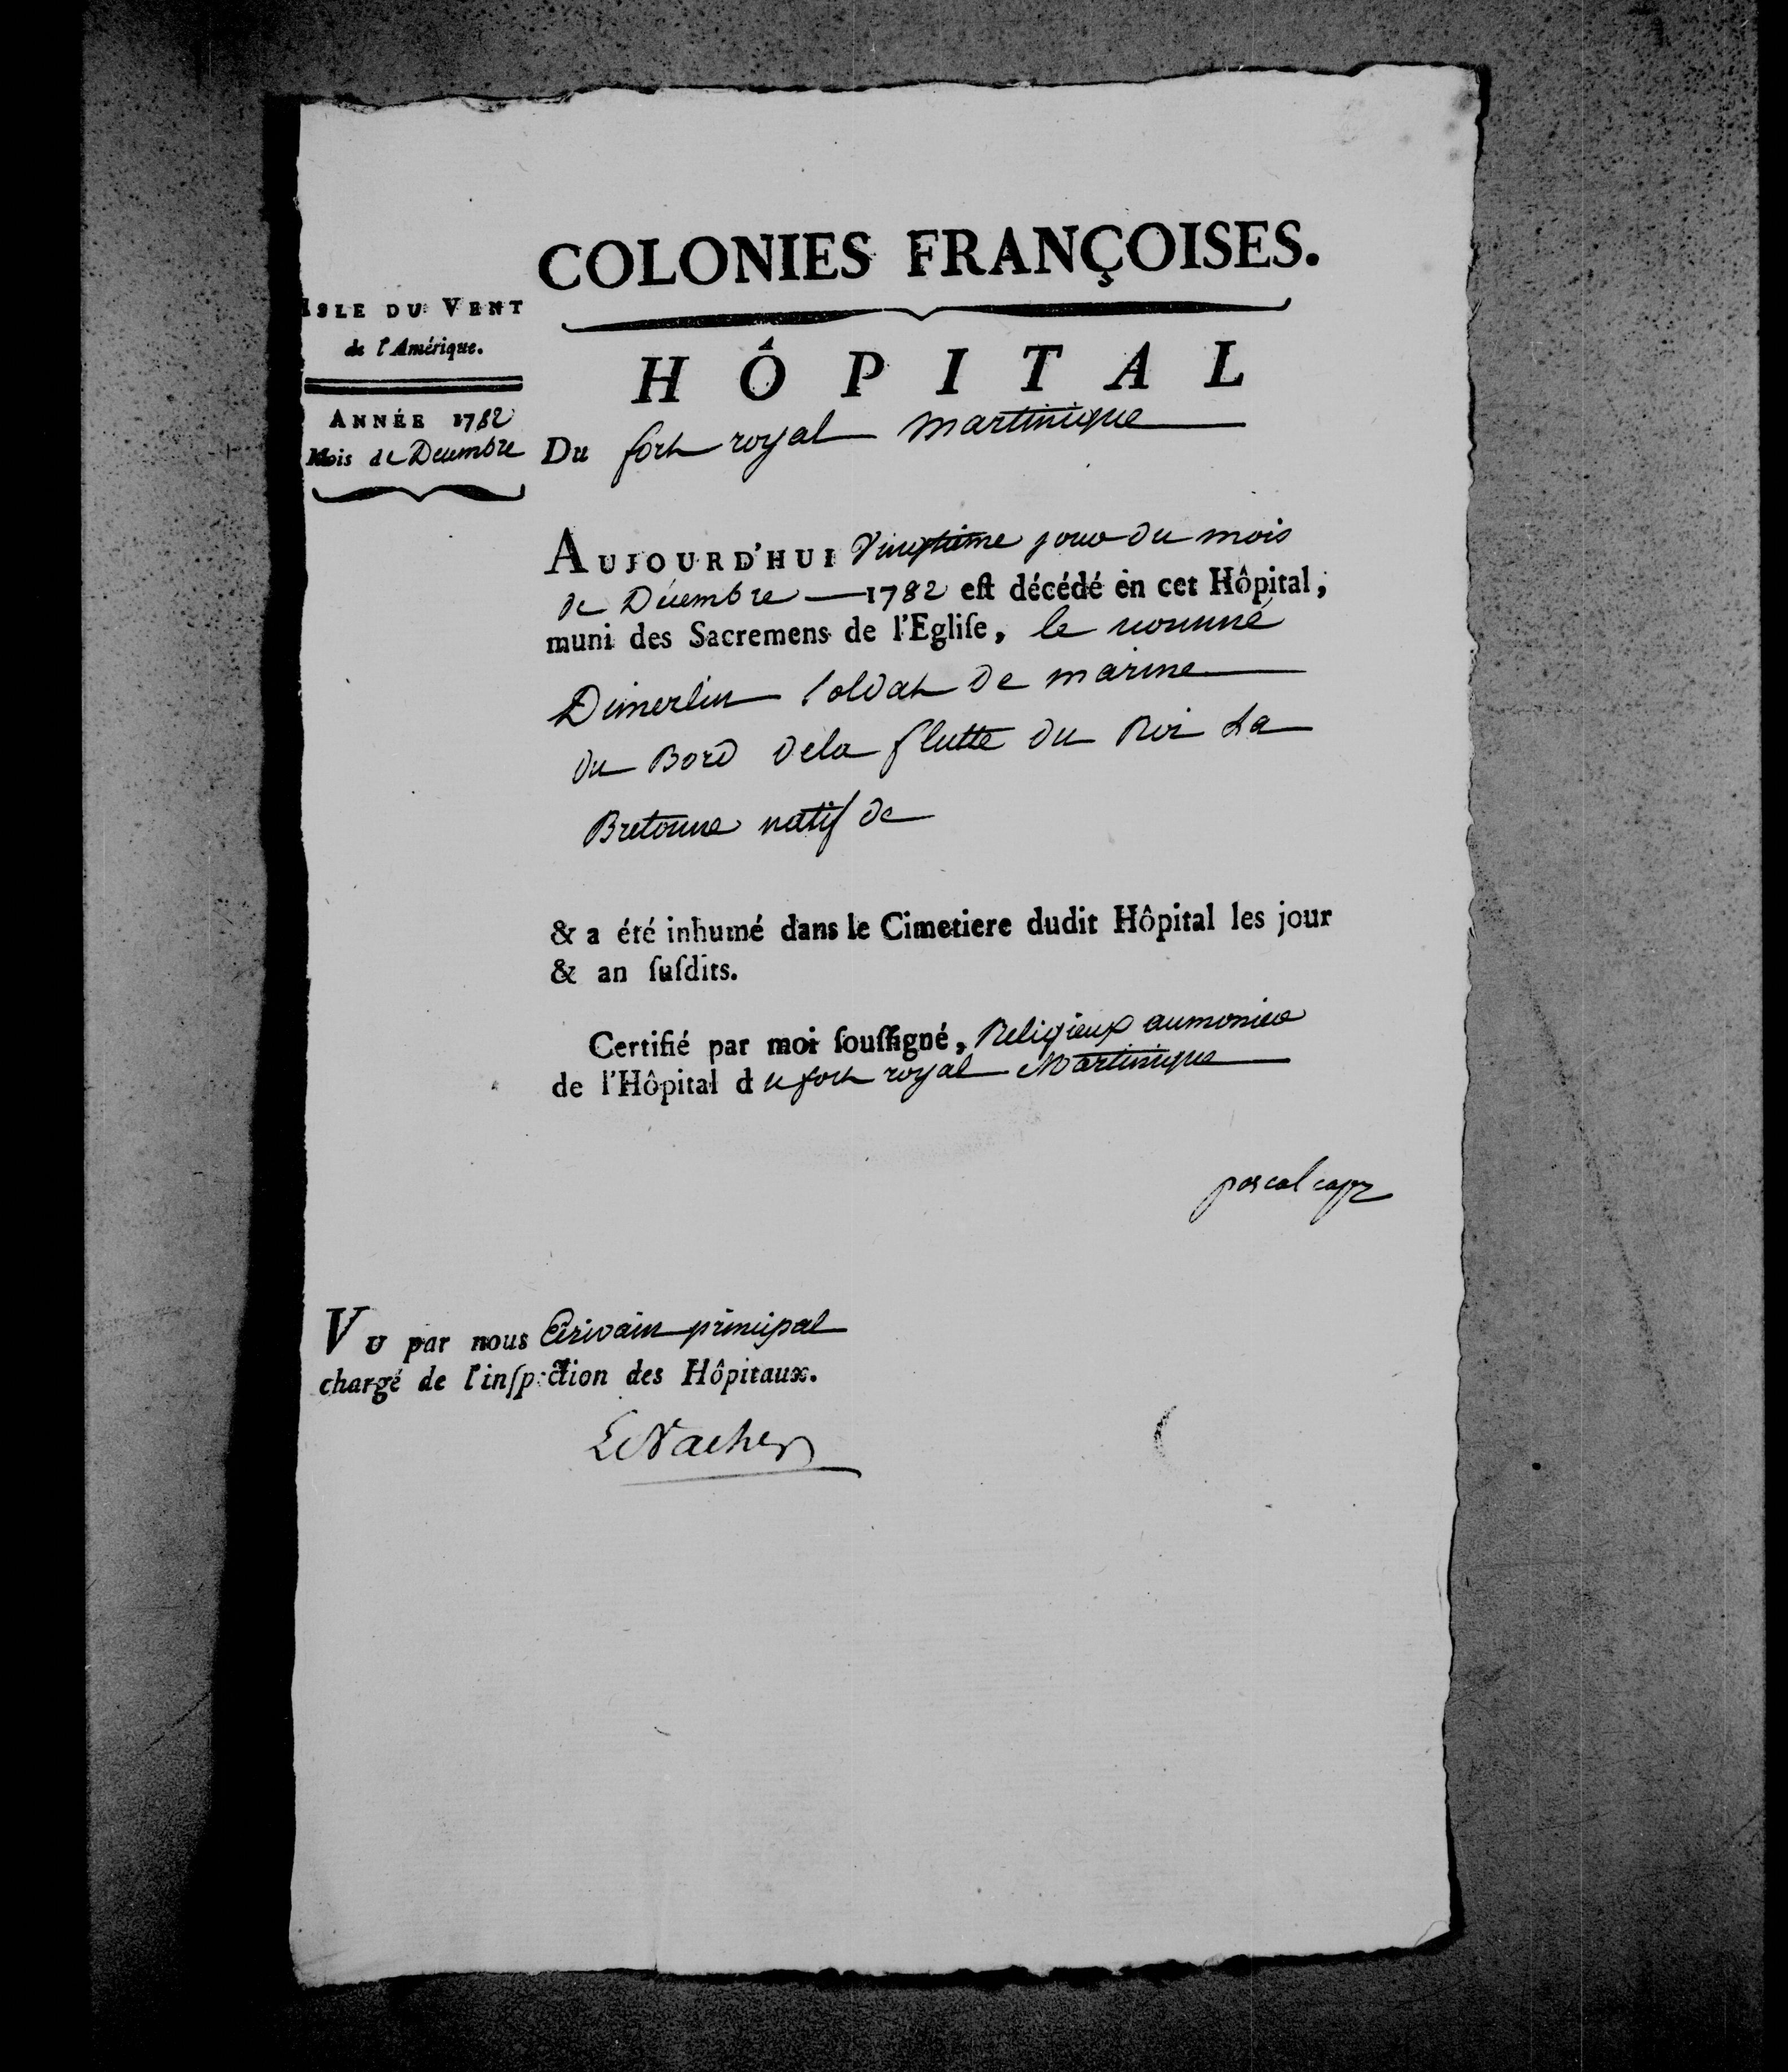 COLONIES FRANÇOISES.
ISLE DU VENT
de l'Amérique.
HÔPITAL
ANNÉE 1782
Mois de Decembre
Du fort royal martinique
AUJOURD'HUI Vingtième jour du mois
de Décembre 1782 eſt décédé en cet Hôpital,
muni des Sacremens de l'Egliſe, le nommé
Dimerlin soldat de marine
du Bord dela flutte du Roi La
Bretonne natif de
& a été inhumé dans le Cimetiere dudit Hôpital les jour
& an ſuſdits.
Certifié par moi ſouſſigné, Religieux aumonier
de l'Hôpital du fort royal Martinique
pascal
VU par nous Ecrivain principal
chargé de l'inſpection des Hôpitaux.